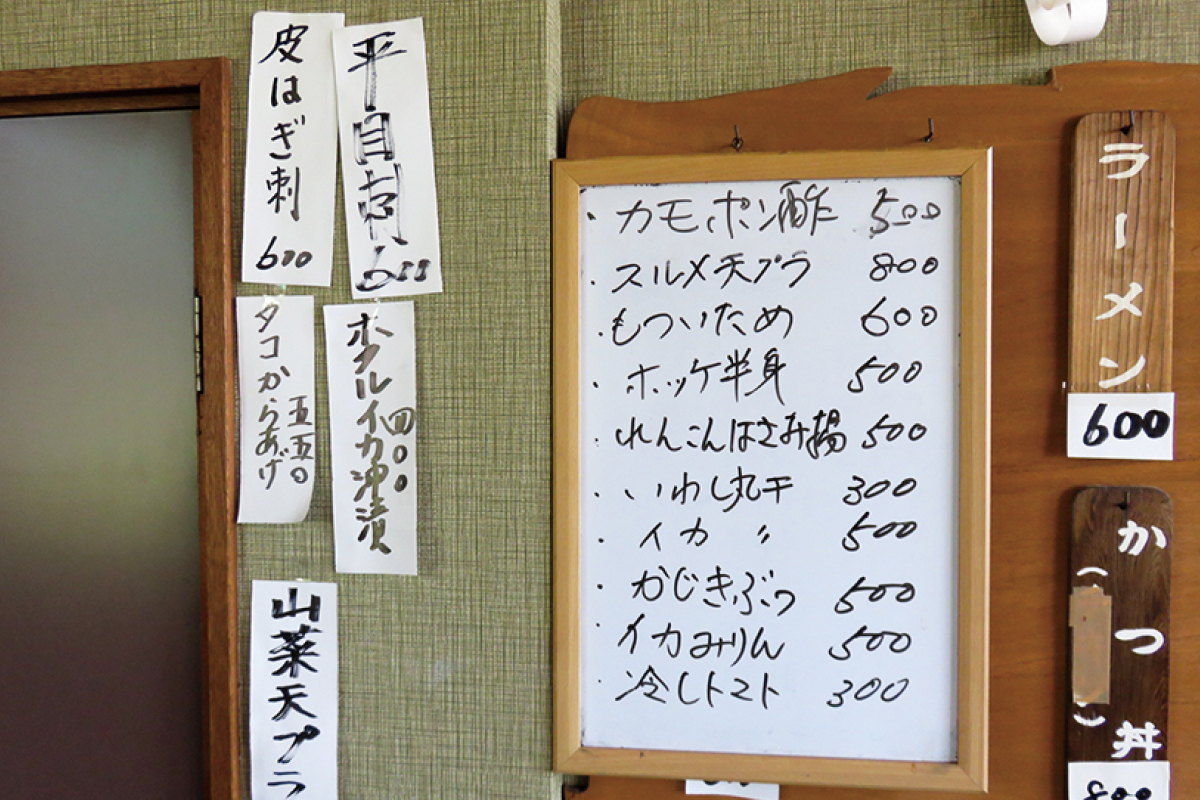 皮はぎ刺
600
平目刺
600
タコからあげ
五五〇
ホタルイカ沖漬
四〇〇
山菜天プラ
・カモポン酢 500
・スルメ天プラ 800
・もついため 600
・ホッケ半身 500
・れんこんはさみ揚 500
・いわし丸干 300
・イカ 〃 500
・かじきぶつ 500
・イカみりん 500
・冷しトマト 300
ラーメン
600
かつ丼
( )
800